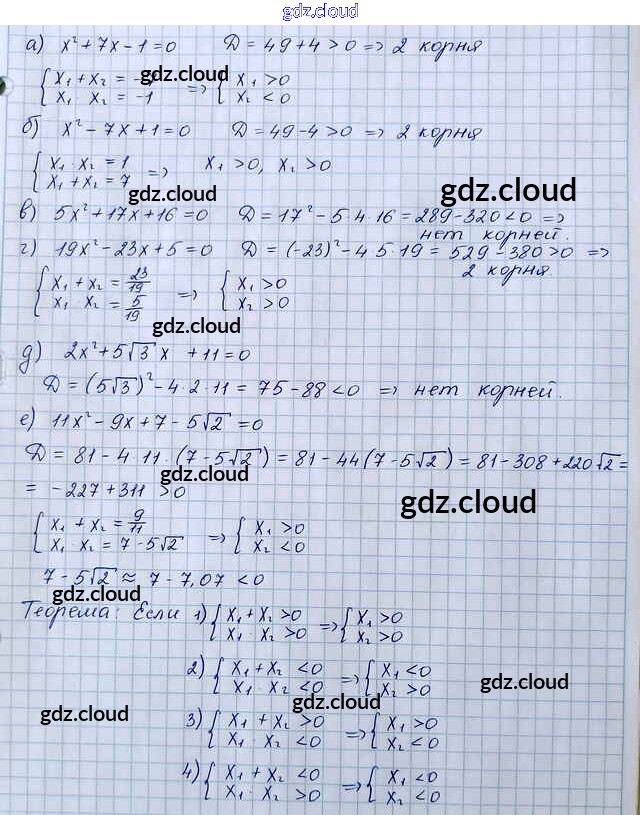 gdz.cloud
а) x² + 7x - 1 = 0 D = 49 + 4 > 0 => 2 корня
{ x₁ + x₂ = - => { x₁ > 0
x₁ x₂ = -1 x₂ < 0
gdz.cloud
б) x² - 7x + 1 = 0 D = 49 - 4 > 0 => 2 корня
{ x₁ · x₂ = 1 => x₁ > 0, x₂ > 0
x₁ + x₂ = 7
gdz.cloud
gdz.cloud
в) 5x² + 17x + 16 = 0 D = 17² - 5·4·16 = 289 - 320 < 0 =>
нет корней.
г) 19x² - 23x + 5 = 0 D = (-23)² - 4·5·19 = 529 - 380 > 0 =>
2 корня.
{ x₁ + x₂ = 23/19 => { x₁ > 0
x₁ · x₂ = 5/19 x₂ > 0
gdz.cloud
д) 2x² + 5√3 x + 11 = 0
D = (5√3)² - 4·2·11 = 75 - 88 < 0 => нет корней.
е) 11x² - 9x + 7 - 5√2 = 0
D = 81 - 4·11·(7 - 5√2) = 81 - 44(7 - 5√2) = 81 - 308 + 220√2 =
gdz.cloud
= -227 + 311 > 0
gdz.cloud
{ x₁ + x₂ = 9/11 => { x₁ > 0
x₁ · x₂ = 7 - 5√2 x₂ < 0
7 - 5√2 ≈ 7 - 7,07 < 0
gdz.cloud
Теорема: Если 1) { x₁ + x₂ > 0 => { x₁ > 0
x₁ · x₂ > 0 x₂ > 0
gdz.cloud
2) { x₁ + x₂ < 0 => { x₁ < 0
x₁ · x₂ < 0 x₂ > 0
gdz.cloud
gdz.cloud
3) { x₁ + x₂ > 0 => { x₁ > 0
x₁ · x₂ < 0 x₂ < 0
4) { x₁ + x₂ < 0 => { x₁ < 0
x₁ · x₂ > 0 x₂ < 0
gdz.cloud